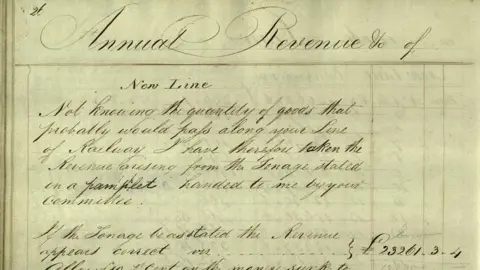 26
Annual Revenue &c of
New Line
Not knowing the quantity of goods that
probably would pass along your Line
of Railway I have therefore taken the
Revenue aresing from the Tonage stated
in a pamplet handed to me by your
Committee.
If the Tonage be as stated the Revenue
appears correct viz £23261-3-4